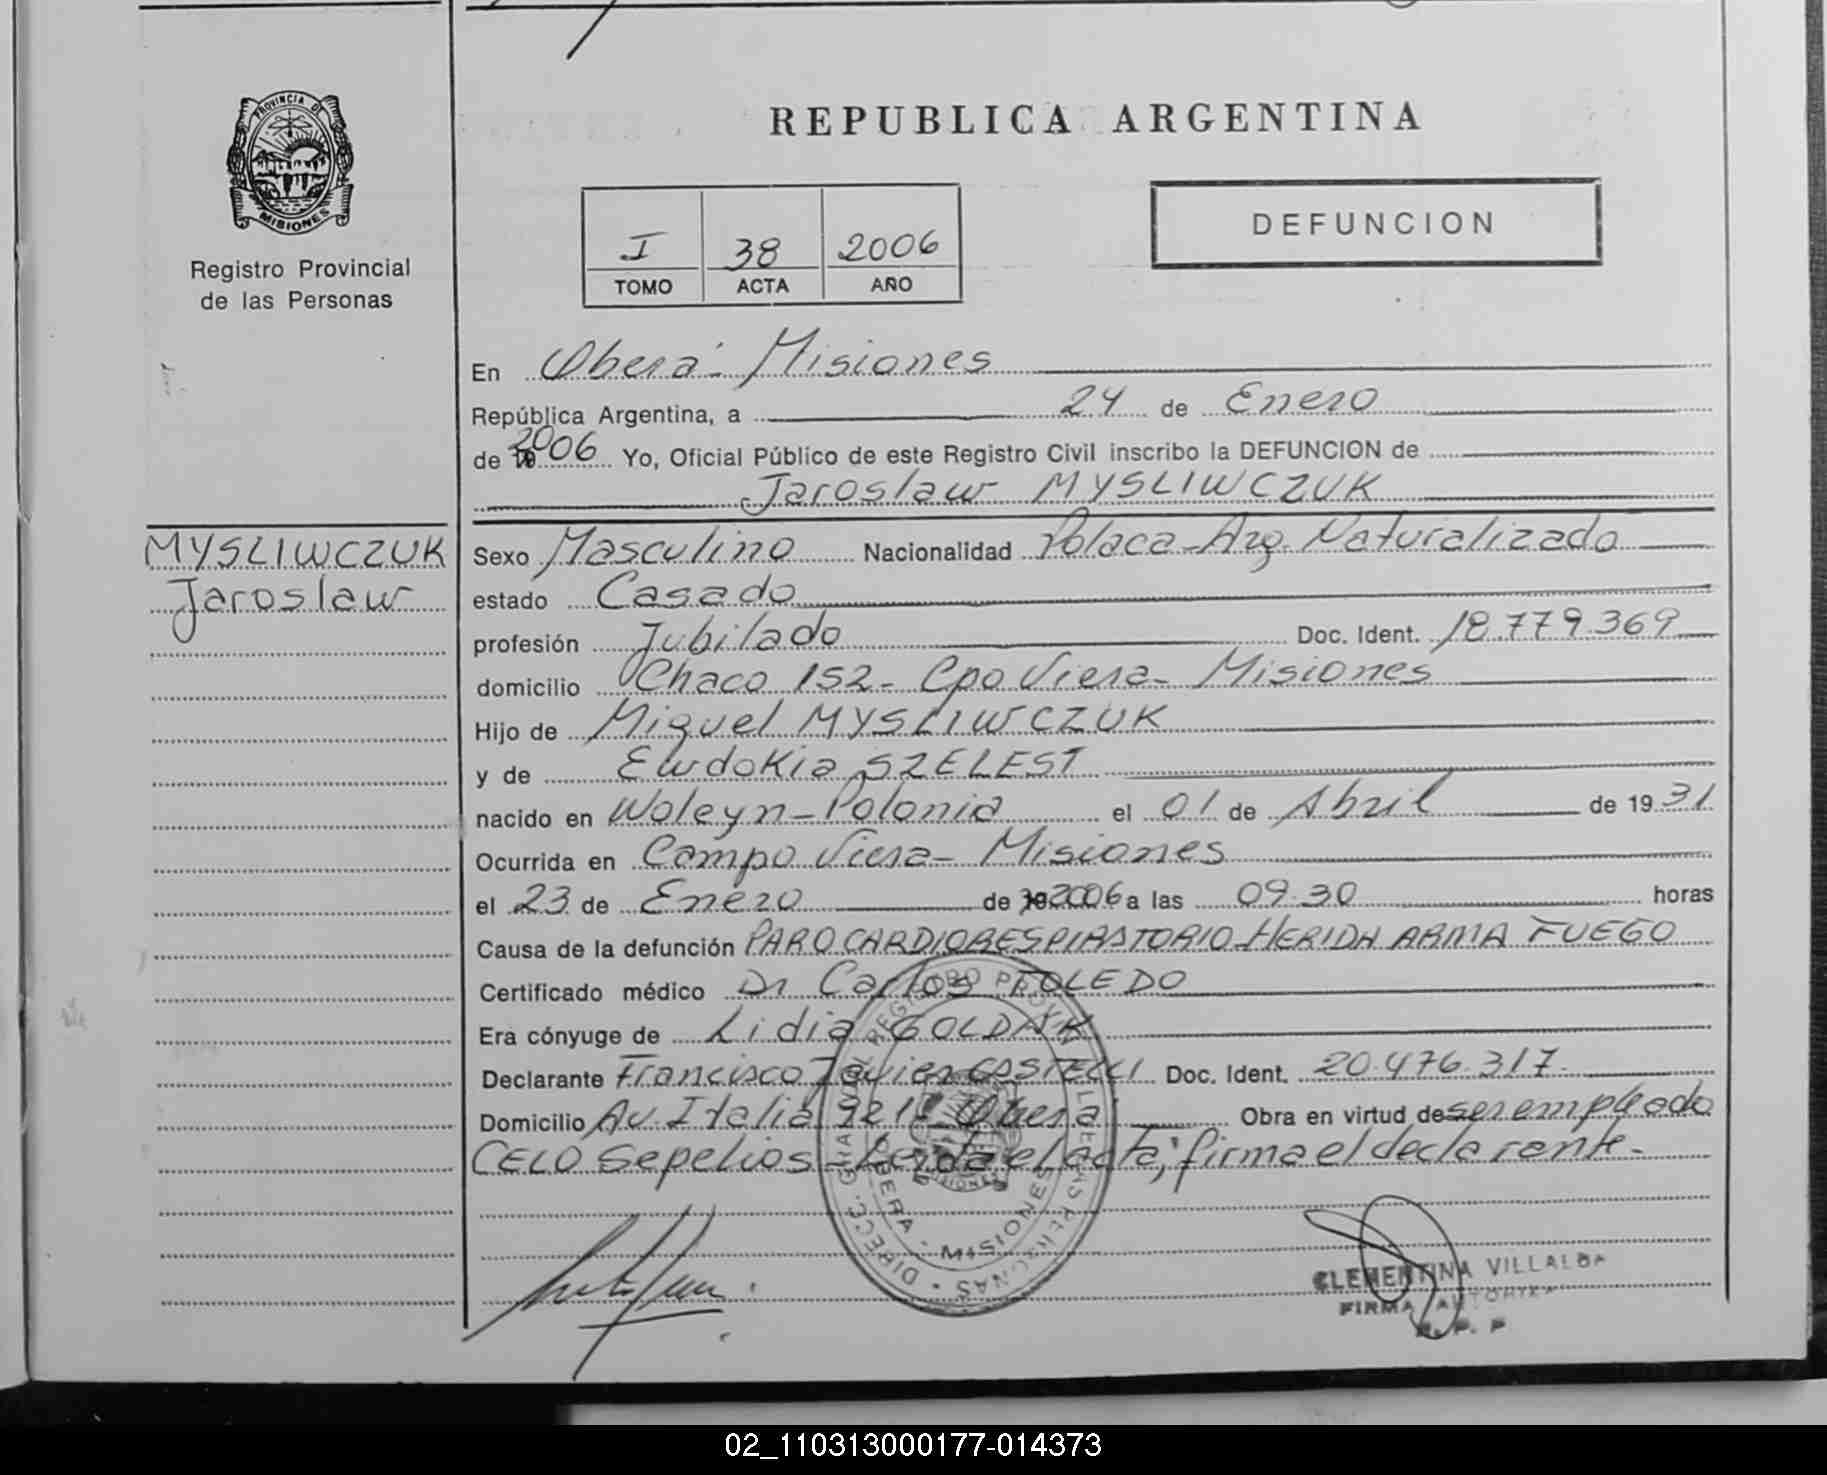 PROVINCIA DE
MISIONES
Registro Provincial
de las Personas
REPUBLICA ARGENTINA
I 38 2006
TOMO ACTA AÑO
DEFUNCION
En Oberá - Misiones
República Argentina, a 24 de Enero
de 19 2006 Yo, Oficial Público de este Registro Civil inscribo la DEFUNCION de
Jaroslaw MYSLIWCZUK
MYSLIWCZUK
Jaroslaw
Sexo Masculino Nacionalidad Polaca - Arg. Naturalizado
estado Casado
profesión Jubilado Doc. Ident. 18.779.369
domicilio Chaco 152 - Cpo Viera - Misiones
Hijo de Miguel MYSLIWCZUK
y de Ewdokia SZELEST
nacido en Woleyn - Polonia el 01 de Abril de 19 31
Ocurrida en Campo Viera - Misiones
el 23 de Enero de 19 2006 a las 09.30 horas
Causa de la defunción PARO CARDIORESPIRATORIO - HERIDA ARMA FUEGO
Certificado médico Dr Carlos TOLEDO
Era cónyuge de Lidia GOLDAK
Declarante Francisco Javier Doc. Ident. 20.476.317
Domicilio Av. Italia 921 - Oberá Obra en virtud de ser empleado
CELO Sepelios - Leida el acta, firma el declarante -
DIRECC. GRAL. REGISTRO PROVINCIAL DE LAS PERSONAS
OBERA - MISIONES
MISIONES
CLEMENTINA VILLALBA
FIRMA
R. P. P
02_110313000177-014373